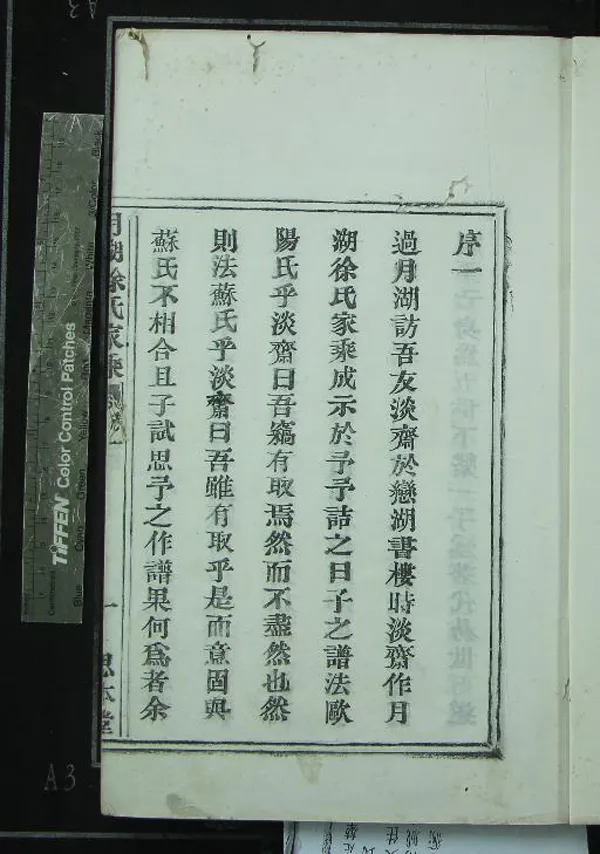 序一
過月湖訪吾友淡齋於戀湖書樓時淡齋作月
湖徐氏家乘成示於予予詰之曰子之譜法歐
陽氏乎淡齋曰吾竊有取焉然而不盡然也然
則法蘇氏乎淡齋曰吾雖有取乎是而意固與
蘇氏不相合且子試思予之作譜果何爲者余
月湖徐氏家乘
一
思本堂
TIFFEN Color Control Patches
A3